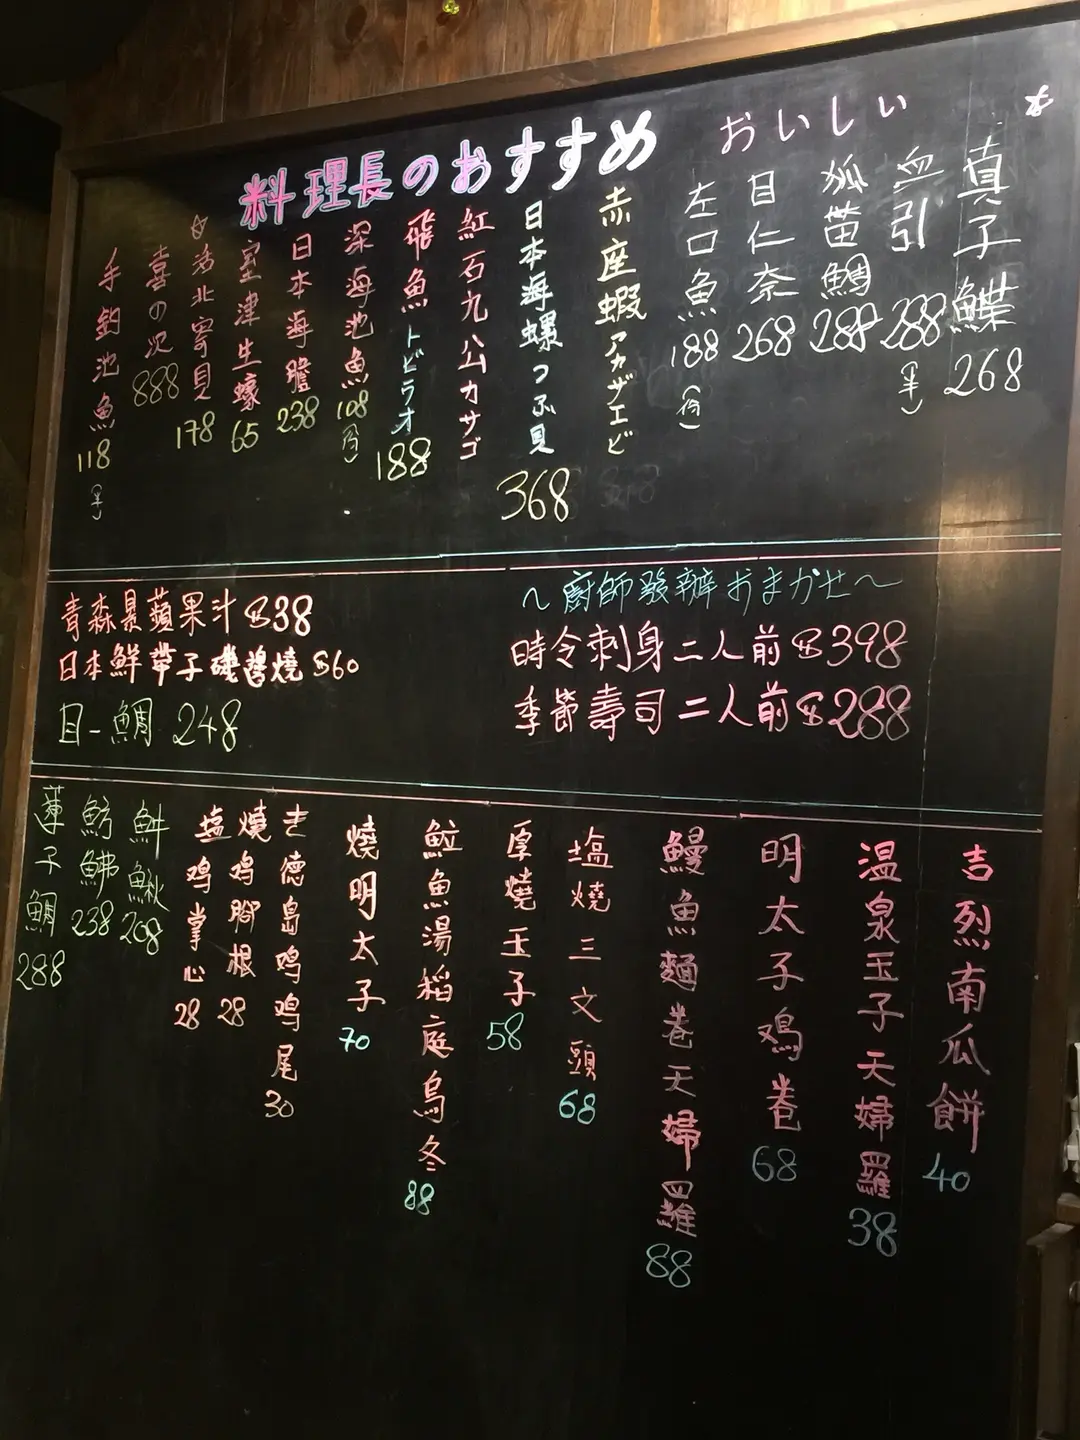 料理長のおすすめ
おいしい
真子鰈 268
血引 288 (半)
狐苗鯛 288
目仁奈 268
左口魚 188 (份)
赤座蝦アカザエビ
日本海螺つぶ貝 368
紅石九公カサゴ
飛魚トビラオ 188
深海池魚 108 (份)
日本海膽 238
室津生蠔 65
活北寄貝 178
喜の次 888
手釣池魚 118 (半)
青森県蘋果汁 $38
日本鮮帶子磯醬燒 $60
目一鯛 248
～廚師發辦おまかせ～
時令刺身二人前 $398
季節壽司二人前 $288
吉列南瓜餅 40
温泉玉子天婦羅 38
明太子鸡卷 68
鰻魚麵卷天婦羅 88
塩燒三文頭 68
厚燒玉子 58
魚湯稻庭烏冬 88
燒明太子 70
德島鸡鸡尾 30
燒鸡腳根 28
塩鸡掌心 28
鰍 208
魴鮄 238
蓮子鯛 288